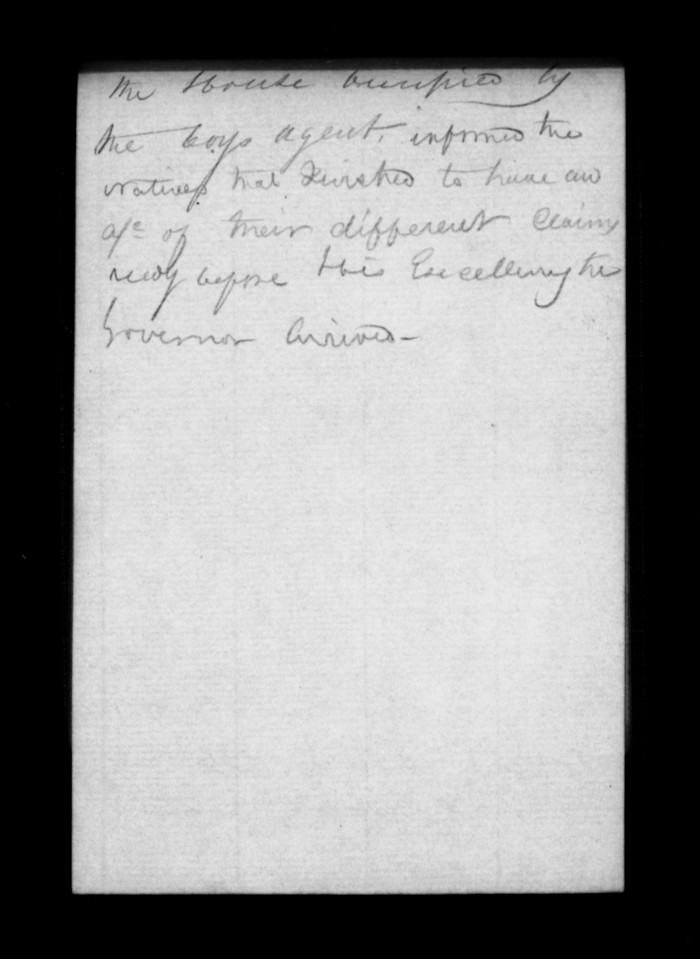 the House occupied by
the Coys agent, informed the
natives that I wished to have an
a/c of their different Claims
ready before His Excellency the
Governor Arrived –